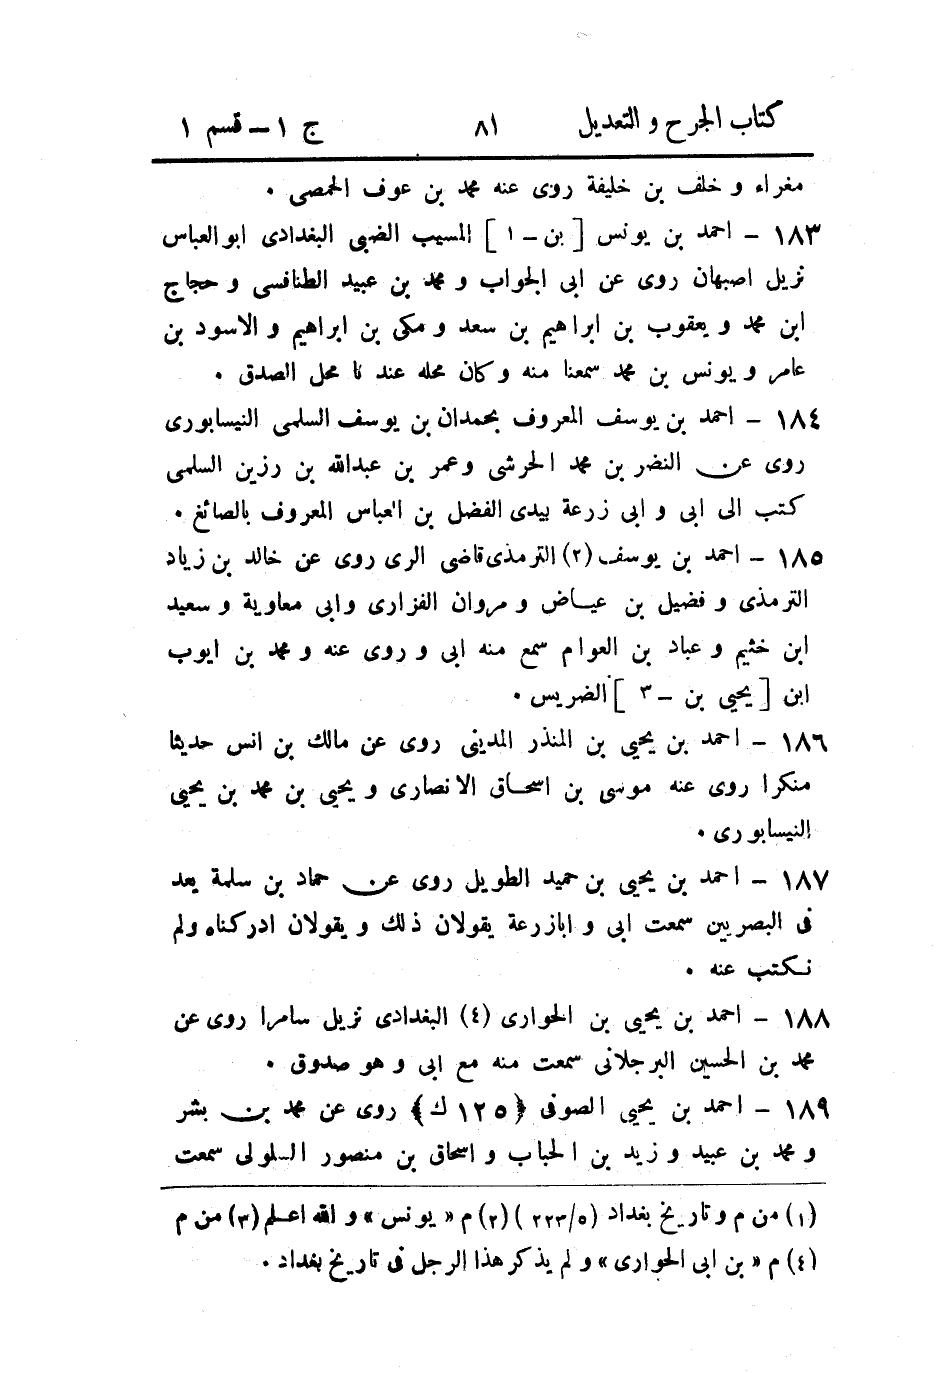 كتاب الجرح و التعديل ٨١ ج ١ – قسم ١
مغراء و خلف بن خليفة روى عنه محمد بن عوف الحمصى .
١٨٣ – احمد بن يونس [ بن – ١ ] المسيب الضبى البغدادى ابو العباس
نزيل اصبهان روى عن ابى الجواب و محمد بن عبيد الطنافسى و حجاج
ابن محمد و يعقوب بن ابراهيم بن سعد و مكى بن ابراهيم و الاسود بن
عامر و يونس بن محمد سمعنا منه و كان محله عند نا محل الصدق .
١٨٤ – احمد بن يوسف المعروف بحمدان بن يوسف السلمى النيسابورى
روى عن النضر بن محمد الحرشى و عمر بن عبدالله بن رزين السلمى
كتب الى ابى و ابى زرعة بيدى الفضل بن العباس المعروف بالصائغ .
١٨٥ – احمد بن يوسف (٢) الترمذى قاضى الرى روى عن خالد بن زياد
الترمذى و فضيل بن عياض و مروان الفزارى وابى معاوية و سعيد
ابن خثيم و عباد بن العوام سمع منه ابى و روى عنه و محمد بن ايوب
ابن [ يحيى بن – ٣ ] الضريس .
١٨٦ – احمد بن يحيى بن المنذر المدينى روى عن مالك بن انس حديثا
منكرا روى عنه موسى بن اسحاق الانصارى و يحيى بن محمد بن يحيى
النيسابورى .
١٨٧ – احمد بن يحيى بن حميد الطويل روى عن حماد بن سلمة يعد
فى البصريين سمعت ابى و ابازرعة يقولان ذلك و يقولان ادركناه ولم
نكتب عنه .
١٨٨ – احمد بن يحيى بن الحوارى (٤) البغدادى نزيل سامرا روى عن
محمد بن الحسين البرجلانى سمعت منه مع ابى و هو صدوق .
١٨٩ – احمد بن يحيى الصوفى ﴿١٢٥ ك﴾ روى عن محمد بن بشر
و محمد بن عبيد و زيد بن الحباب و اسحاق بن منصور السلولى سمعت
(١) من م و تاريخ بغداد (٥/٢٢٣) (٢) م « يونس » و الله اعلم (٣) من م
(٤) م « بن ابى الحوارى » و لم يذكر هذا الرجل فى تاريخ بغداد .